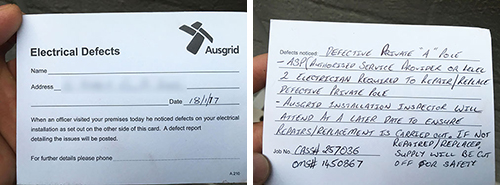 Electrical Defects
Ausgrid
Name
Address
Date 18/1/17
When an officer visited your premises today he noticed defects on your electrical
installation as set out on the other side of this card. A defect report
detailing the issues will be posted.
For further details please phone
A 210
Defects noticed DEFECTIVE PRIVATE "A" POLE
- ASP (AUTHORISED SERVICE PROVIDER OR LEVEL
2 ELECTRICIAN REQUIRED TO REPAIR/REPLACE
DEFECTIVE PRIVATE POLE
- AUSGRID INSTALLATION INSPECTOR WILL
ATTEND AT A LATER DATE TO ENSURE
REPAIRS/REPLACEMENT IS CARRIED OUT. IF NOT
REPAIRED/REPLACED,
Job No. CASS# 257036 SUPPLY WILL BE CUT
OMS# 1450867 OFF FOR SAFETY